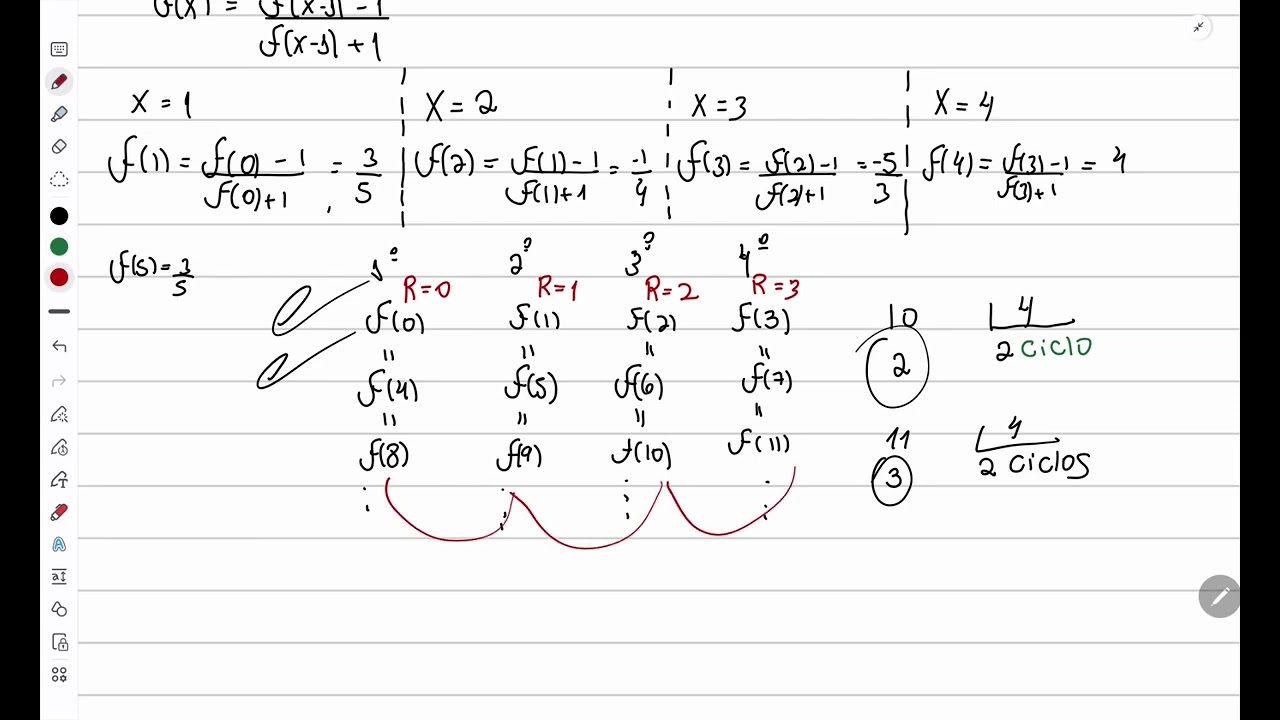 f(x) = f(x-1) - 1 / f(x-1) + 1
x = 1
f(1) = f(0) - 1 / f(0) + 1 = 3/5
x = 2
f(2) = f(1) - 1 / f(1) + 1 = -1/4
x = 3
f(3) = f(2) - 1 / f(2) + 1 = -5/3
x = 4
f(4) = f(3) - 1 / f(3) + 1 = 4
f(5) = 3/5
1º 2º 3º 4º
R=0 R=1 R=2 R=3
f(0) f(1) f(2) f(3)
= = = =
f(4) f(5) f(6) f(7)
= = = =
f(8) f(9) f(10) f(11)
10 4
2 2 ciclo
11 4
3 2 ciclos